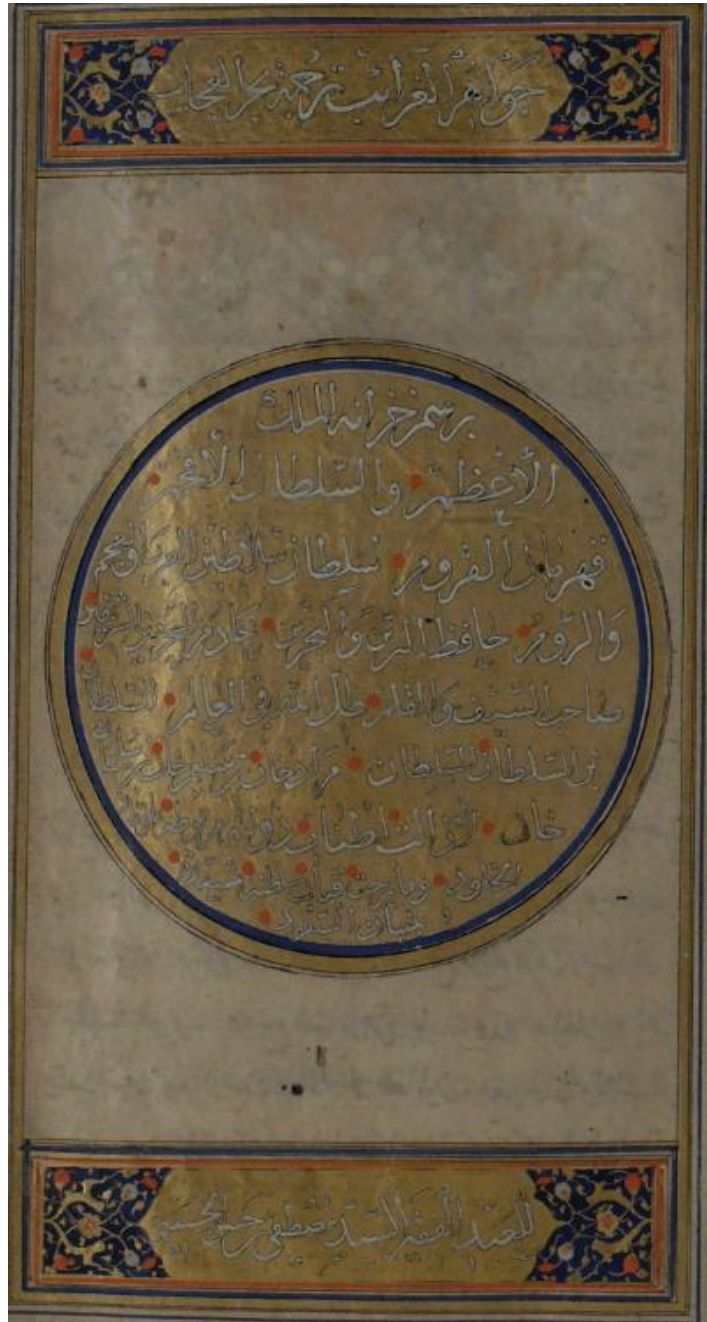 جواهر الغرائب ترجمة بحر العجائب
برسم خزانة الملك
الأعظم والسلطان الأفخم
قهرمان القروم سلطان سلاطين العرب والعجم
والروم حافظ البرين والبحرين خادم الحرمين الشريفين
صاحب السيف والقلم ظل الله في العالم السلطان
بن السلطان السلطان مراد خان بن سليم خان بن سليمان
خان لا زالت اطناب دولته
الخلود وما برحت قباب سلطنته مشيدة
للعبد الفقير السيد مصطفى بن حسن الحسيني